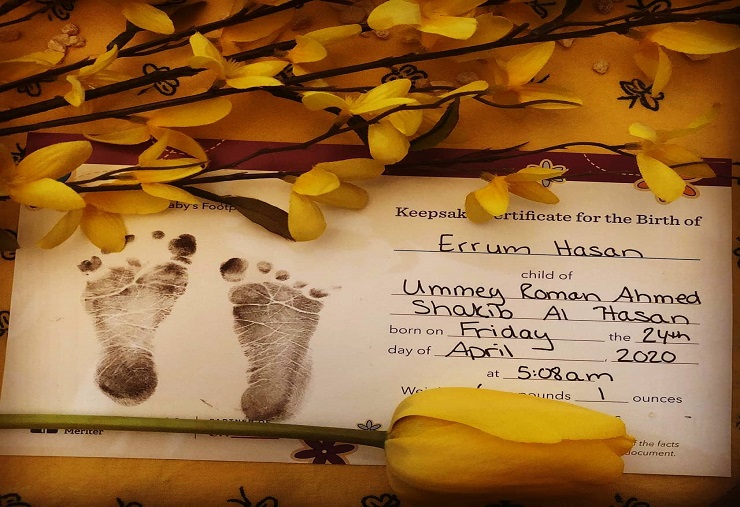 aby's Footp
Keepsak ertificate for the Birth of
Errum Hasan
child of
Ummey Roman Ahmed
Shakib Al Hasan
born on Friday the 24th
day of April, 2020
at 5:08am
ounds 1 ounces
f the facts
document.
Meriter